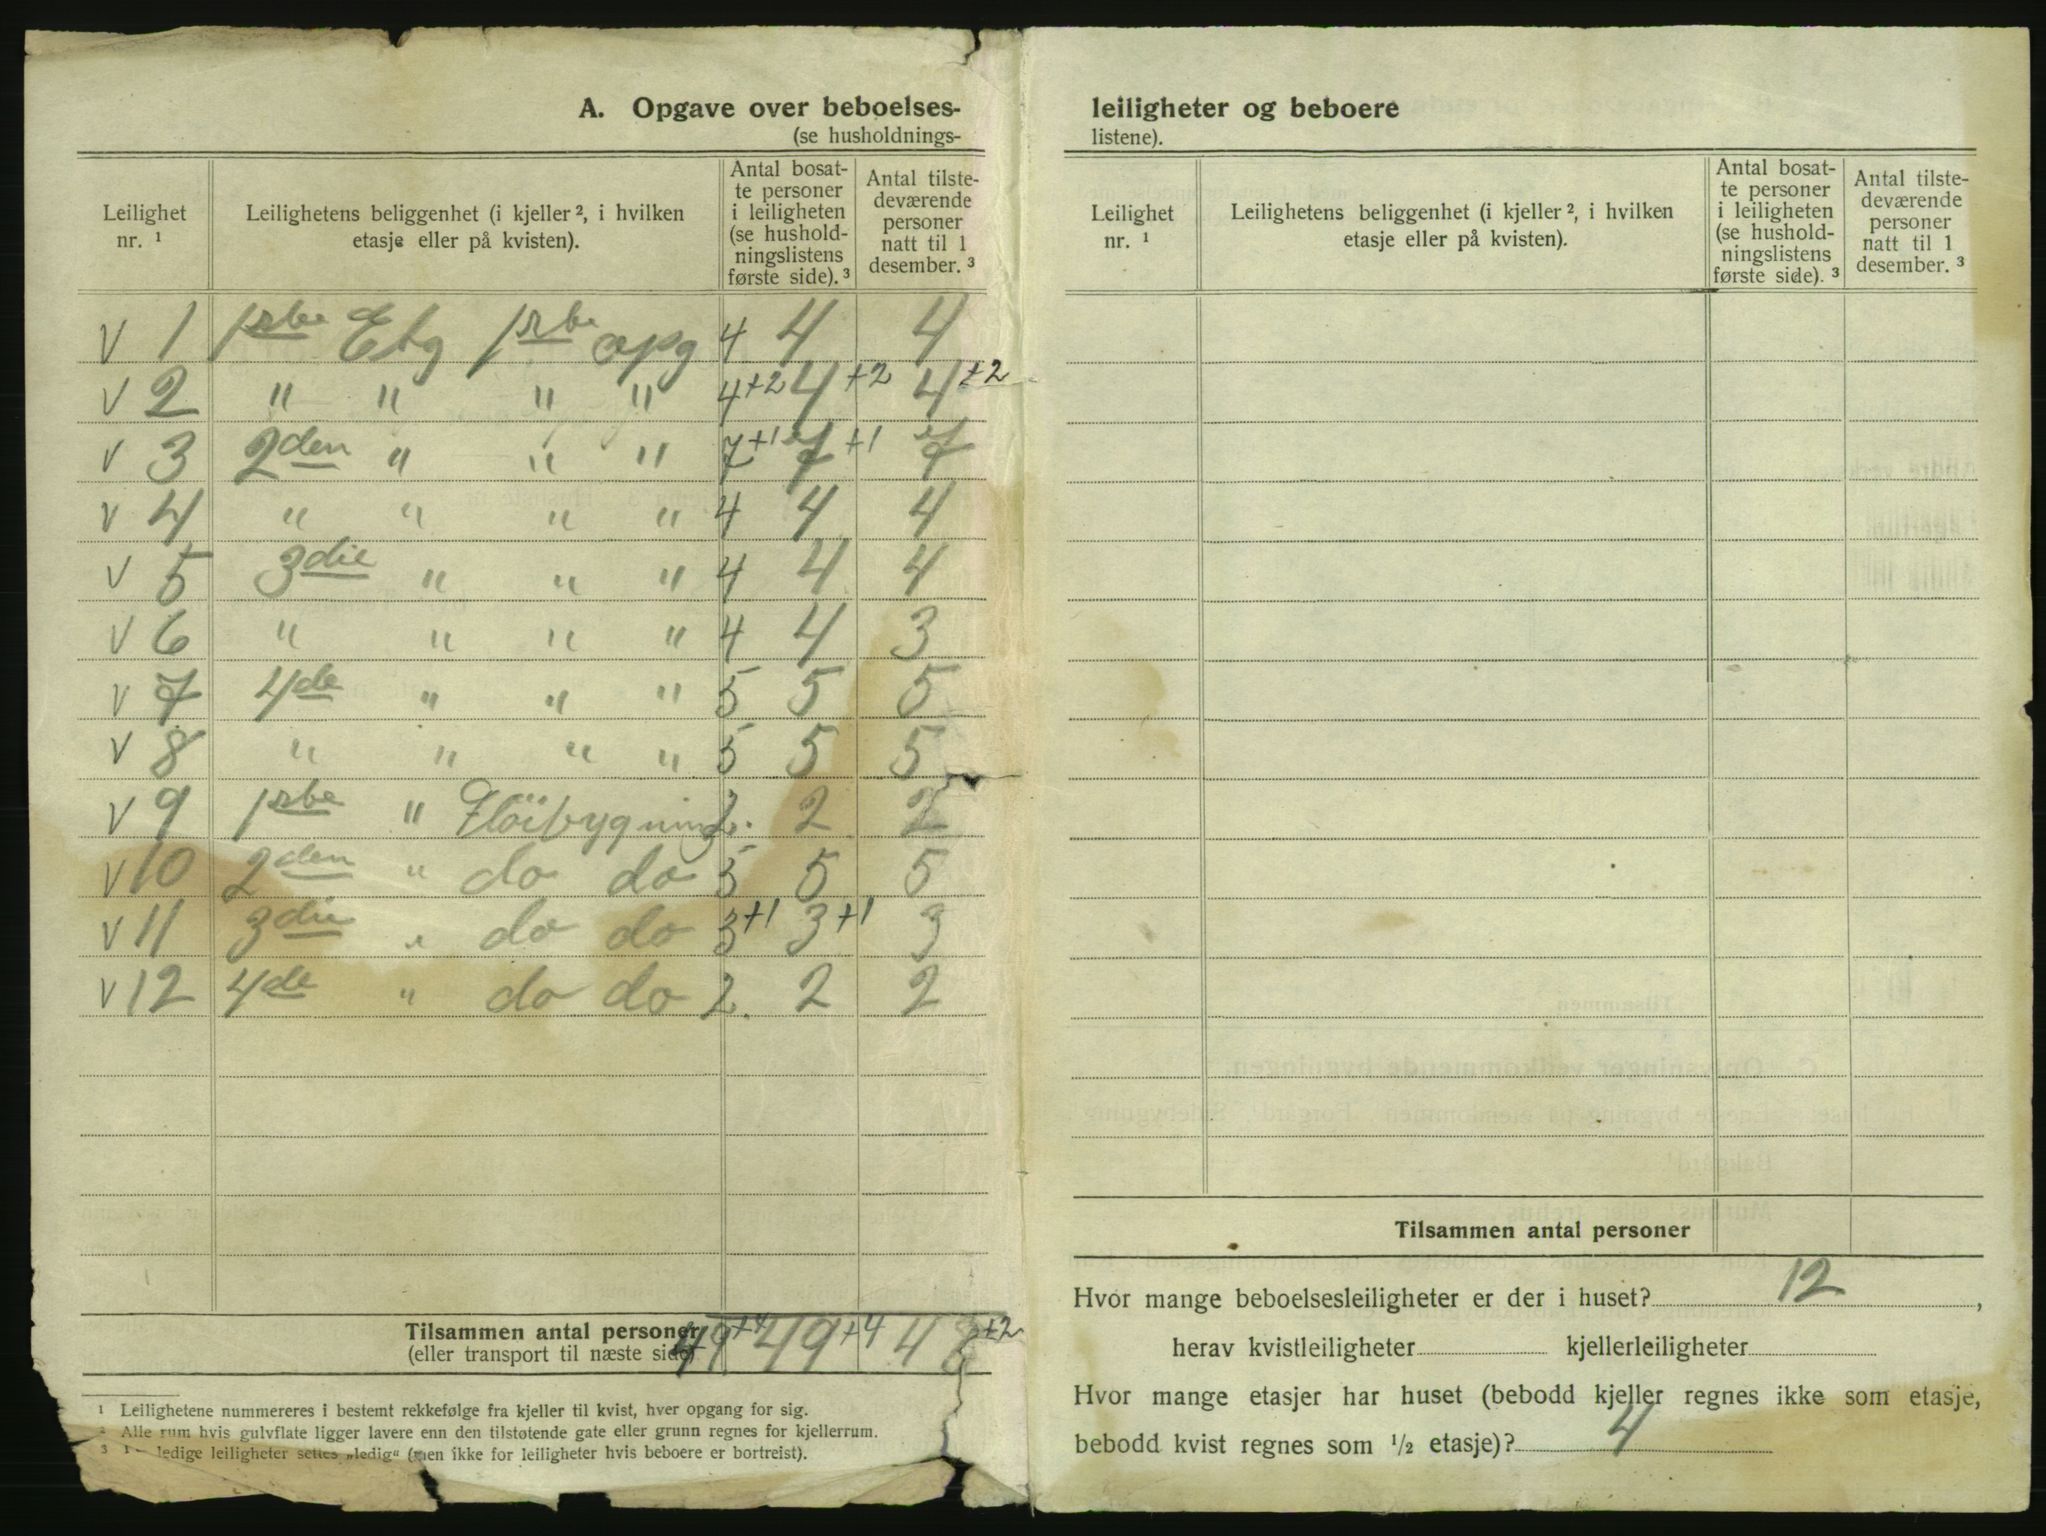 A. Opgave over beboelses-
(se husholdnings-
Leilighet nr. 1
Leilighetens beliggenhet (i kjeller 2, i hvilken etasje eller på kvisten).
Antal bosat-
te personer
i leiligheten
(se hushold-
ningslistens
første side). 3
Antal tilste-
deværende
personer
natt til 1
desember. 3
V 1 1ste Etg 1ste opg 4 4 4
V 2 " " " " 4+2 4+2 4+2
V 3 2den " " " 7+1 7+1 7
V 4 " " " " 4 4 4
V 5 3die " " " 4 4 4
V 6 " " " " 4 4 3
V 7 4de " " " 5 5 5
V 8 " " " " 5 5 5
V 9 1ste " Flöibygning 2. 2 2
V 10 2den " do do 5 5 5
V 11 3die " do do 3+1 3+1 3
V 12 4de " do do 2. 2 2
Tilsammen antal personer 49+4 49+4 48+2
(eller transport til næste side)
1 Leilighetene nummereres i bestemt rekkefølge fra kjeller til kvist, hver opgang for sig.
2 Alle rum hvis gulvflate ligger lavere enn den tilstøtende gate eller grunn regnes for kjellerrum.
3 ledige leiligheter settes „ledig“ (men ikke for leiligheter hvis beboere er bortreist).
leiligheter og beboere
listene).
Leilighet nr. 1
Leilighetens beliggenhet (i kjeller 2, i hvilken etasje eller på kvisten).
Antal bosat-
te personer
i leiligheten
(se hushold-
ningslistens
første side). 3
Antal tilste-
deværende
personer
natt til 1
desember. 3
Tilsammen antal personer
Hvor mange beboelsesleiligheter er der i huset? 12,
herav kvistleiligheter kjellerleiligheter
Hvor mange etasjer har huset (bebodd kjeller regnes ikke som etasje,
bebodd kvist regnes som 1/2 etasje)? 4